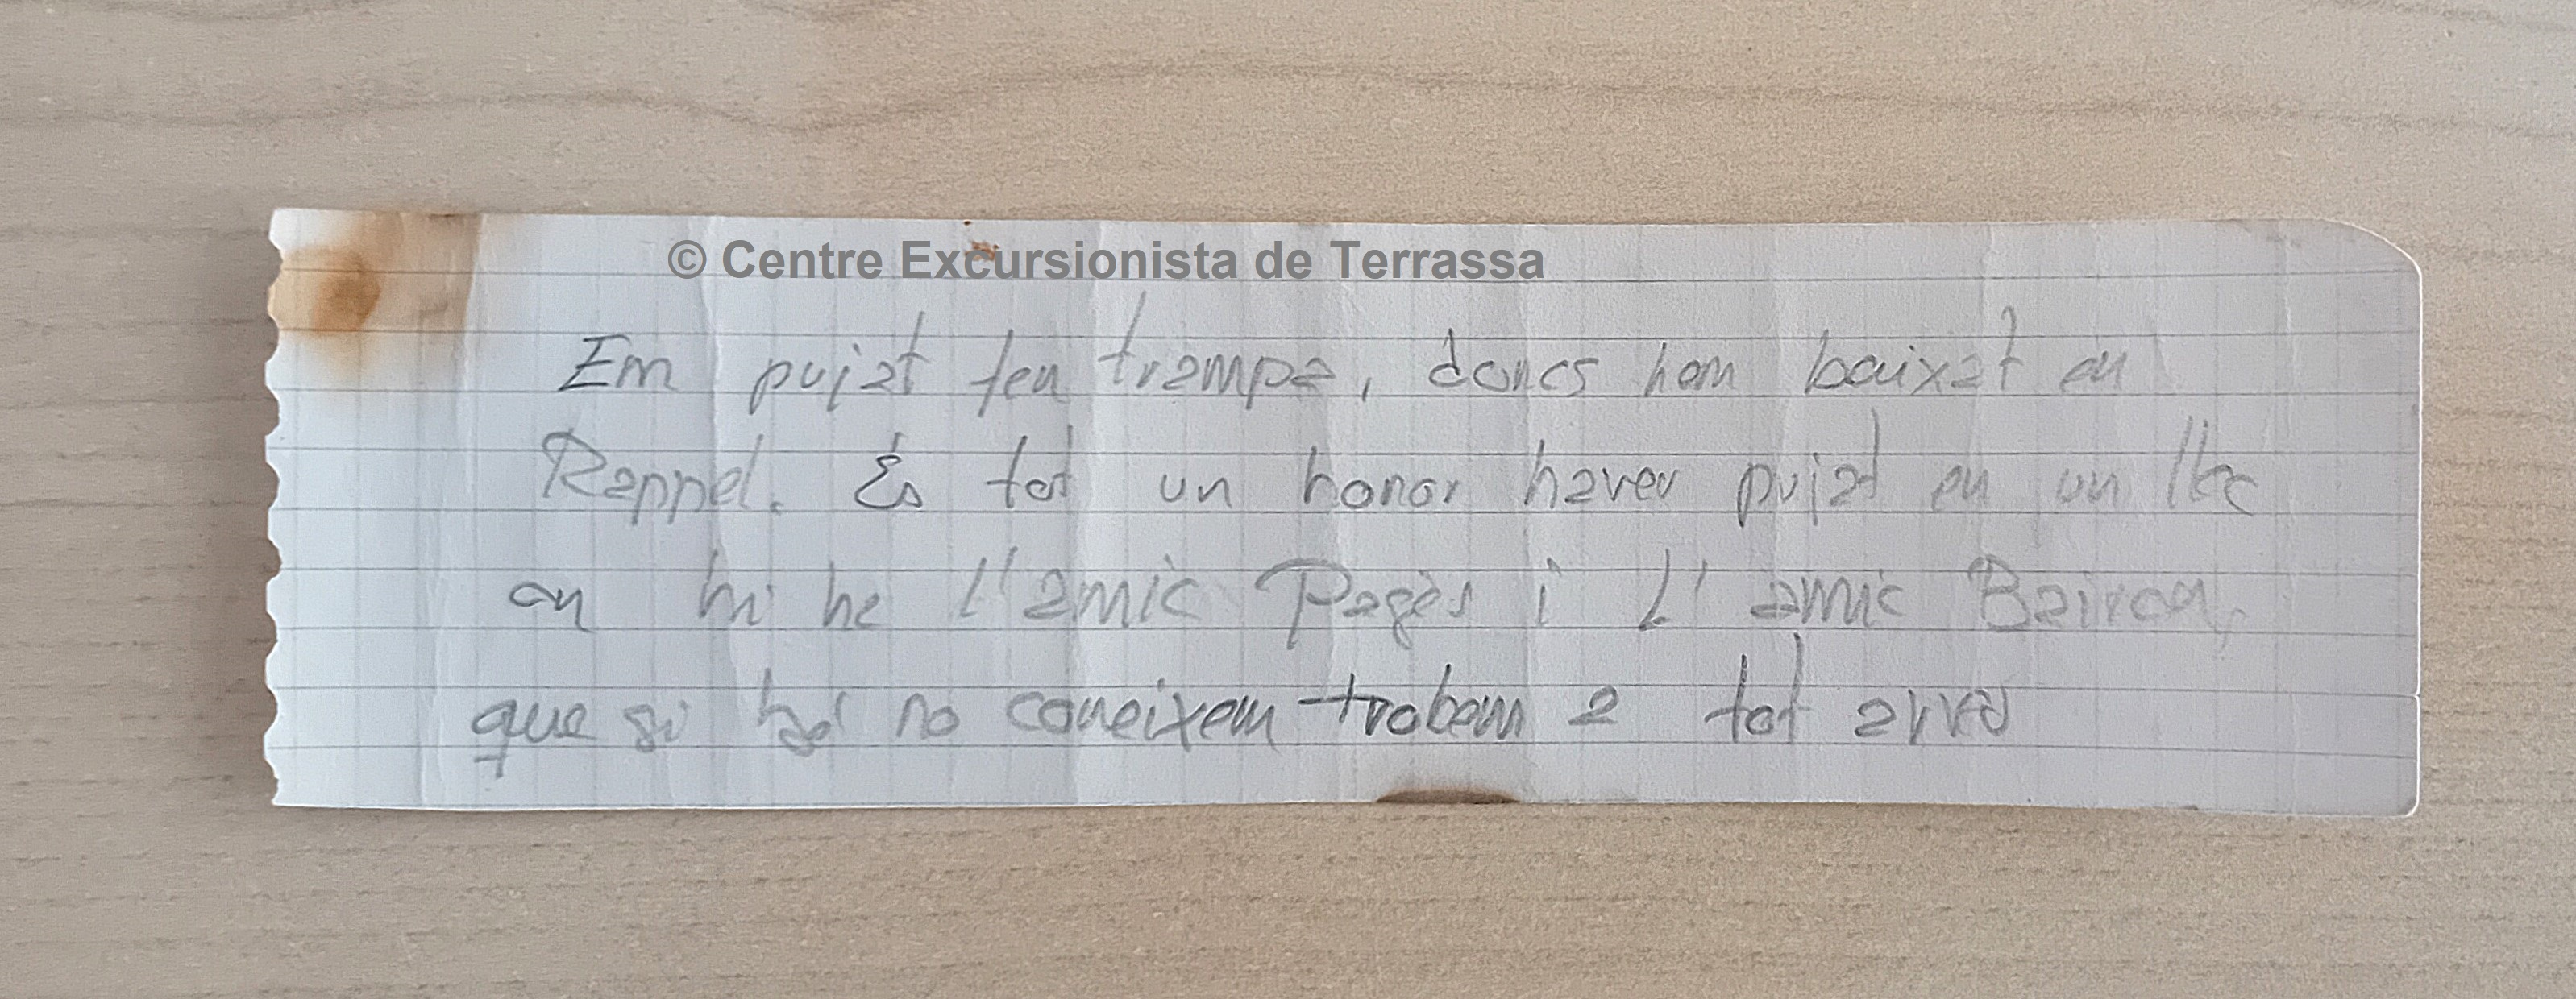 © Centre Excursionista de Terrassa
Em pujat fen trampa, doncs hem baixat en
Rappel. És tot un honor haver pujat en un lloc
on hi ha l'amic Pagès i L'amic
que si no coneixem trobem a tot arreu